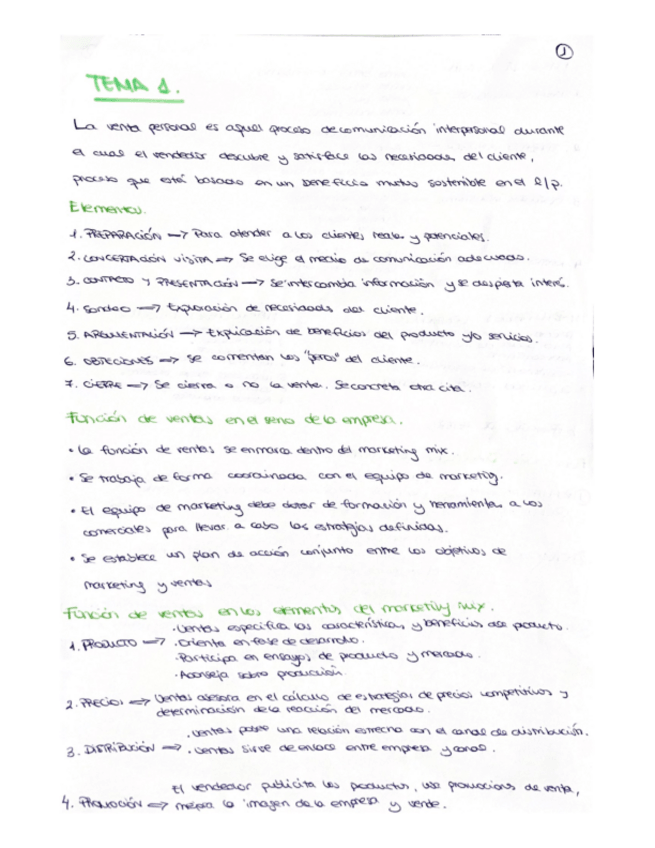 1
TEMA 1.
La venta personal es aquel proceso de comunicación interpersonal durante
el cual el vendedor descubre y satisface las necesidades del cliente,
proceso que está basado en un beneficio mutuo sostenible en el l/p.
Elementos.
1. PREPARACIÓN → Para atender a los clientes reales y potenciales.
2. CONCERTACIÓN VISITA → Se elige el medio de comunicación adecuado.
3. CONTACTO Y PRESENTACIÓN → Se intercambia información y se despierta interés.
4. Sondeo → Exploración de necesidades del cliente.
5. ARGUMENTACIÓN → Explicación de beneficios del producto y/o servicios.
6. OBJECIONES → Se comentan los "peros" del cliente.
7. CIERRE → Se cierra o no la venta. Se concreta otra cita.
Función de ventas en el seno de la empresa.
• La función de ventas se enmarca dentro del marketing mix.
• Se trabaja de forma coordinada con el equipo de marketing.
• El equipo de marketing debe dotar de formación y herramientas a los
comerciales para llevar a cabo las estrategias definidas.
• Se establece un plan de acción conjunto entre los objetivos de
marketing y ventas
Función de ventas en los elementos del marketing mix.
· Ventas especifica las características y beneficios del producto.
1. PRODUCTO → · Orienta en fase de desarrollo.
· Participa en ensayos de producto y mercado.
· Aconseja sobre producción.
2. PRECIOS → Ventas asesora en el cálculo de estrategias de precios competitivos y
determinación de la reacción del mercado.
· Ventas posee una relación estrecha con el canal de distribución.
3. DISTRIBUCIÓN → · Ventas sirve de enlace entre empresa y canal.
El vendedor publicita los productos, usa promociones de venta,
4. PROMOCIÓN → mejora la imagen de la empresa y vende.